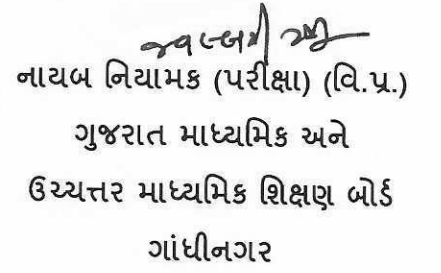 નાયબ નિયામક (પરીક્ષા) (વિ.પ્ર.)
ગુજરાત માધ્યમિક અને
ઉચ્ચત્તર માધ્યમિક શિક્ષણ બોર્ડ
ગાંધીનગર